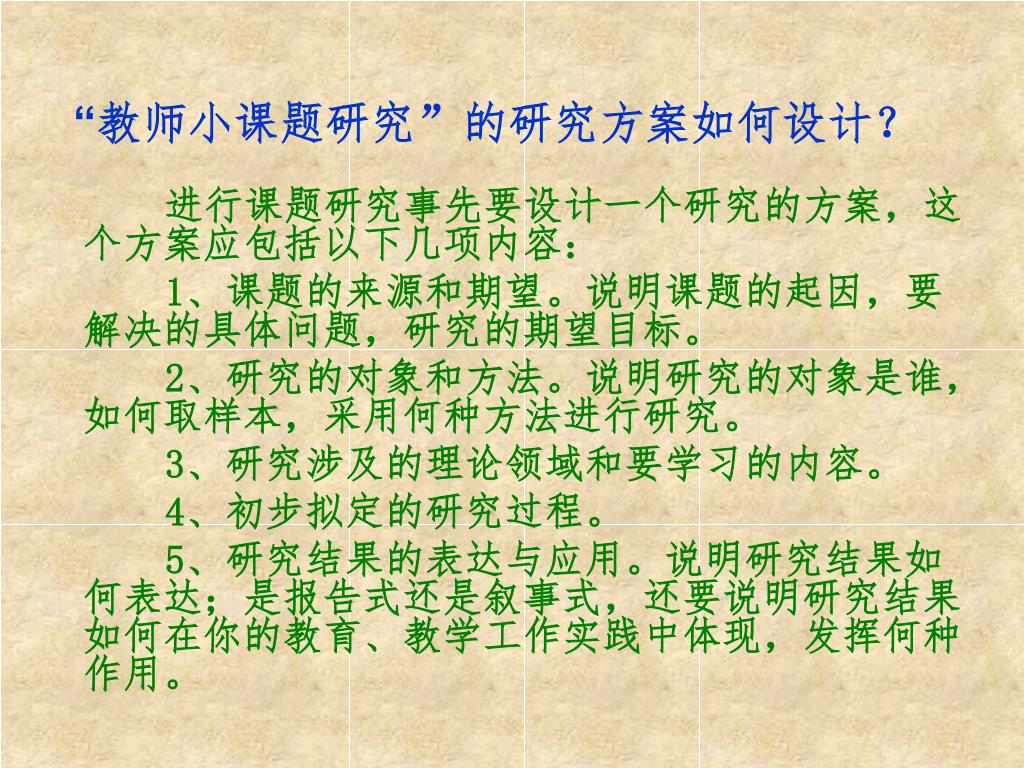 “教师小课题研究”的研究方案如何设计？
进行课题研究事先要设计一个研究的方案，这
个方案应包括以下几项内容：
1、课题的来源和期望。说明课题的起因，要
解决的具体问题，研究的期望目标。
2、研究的对象和方法。说明研究的对象是谁，
如何取样本，采用何种方法进行研究。
3、研究涉及的理论领域和要学习的内容。
4、初步拟定的研究过程。
5、研究结果的表达与应用。说明研究结果如
何表达；是报告式还是叙事式，还要说明研究结果
如何在你的教育、教学工作实践中体现，发挥何种
作用。